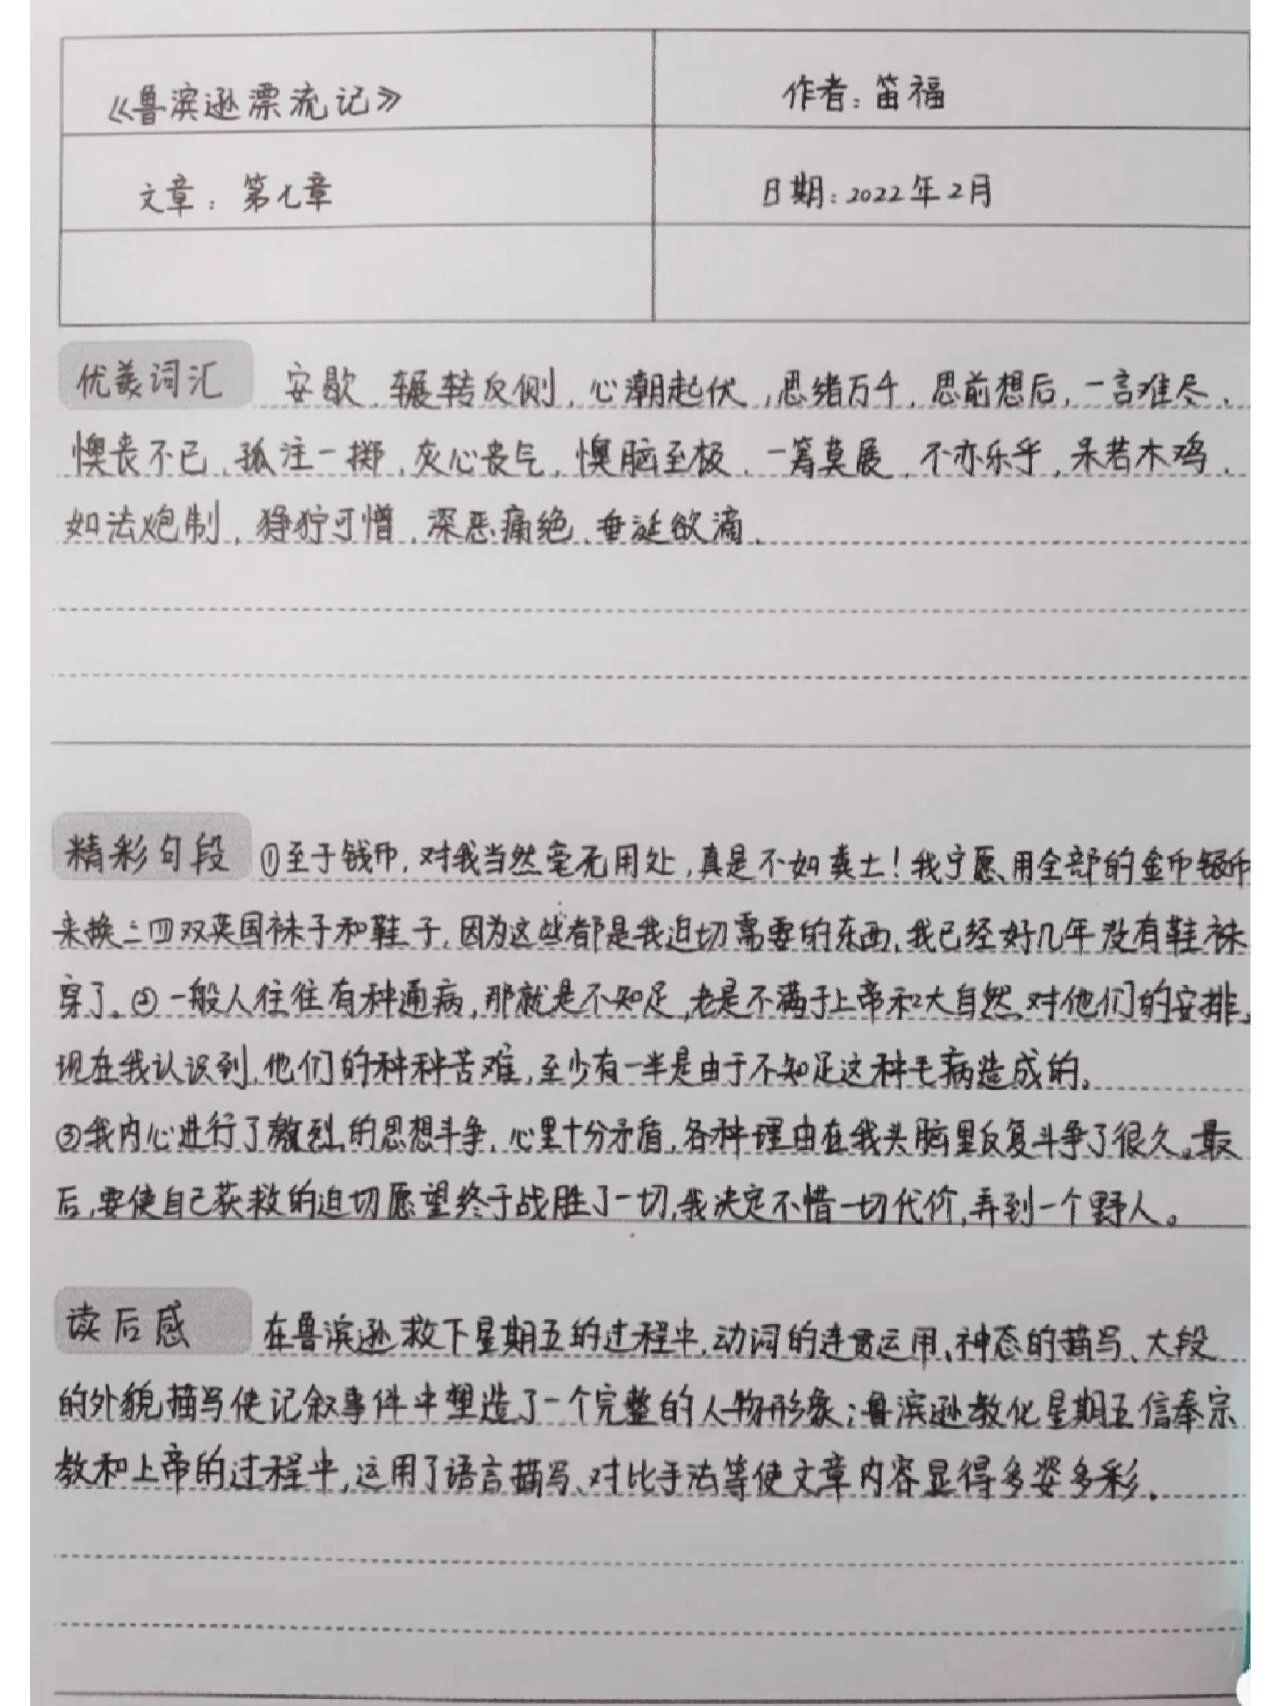 《鲁滨逊漂流记》
作者:笛福
文章:第七章
日期:2022年2月
优美词汇 安歇、辗转反侧、心潮起伏、思绪万千、思前想后、一言难尽、
懊丧不已、孤注一掷、灰心丧气、懊脑至极、一筹莫展、不亦乐乎、呆若木鸡、
如法炮制、狰狞可憎、深恶痛绝、垂涎欲滴、
精彩句段 ①至于钱币,对我当然毫无用处,真是不如粪土!我宁愿用全部的金币银币
来换三四双英国袜子和鞋子,因为这些都是我迫切需要的东西,我已经好几年没有鞋袜
穿了。②一般人往往有种通病,那就是不知足,老是不满于上帝和大自然对他们的安排,
现在我认识到,他们的种种苦难,至少有一半是由于不知足这种毛病造成的。
③我内心进行了激烈的思想斗争,心里十分矛盾,各种理由在我头脑里反复斗争了很久。最
后,要使自己获救的迫切愿望终于战胜了一切,我决定不惜一切代价,弄到一个野人。
读后感 在鲁滨逊救下星期五的过程中,动词的连贯运用、神态的描写、大段
的外貌描写使记叙事件中塑造了一个完整的人物形象;鲁滨逊教化星期五信奉宗
教和上帝的过程中,运用了语言描写、对比手法等使文章内容显得多姿多彩。